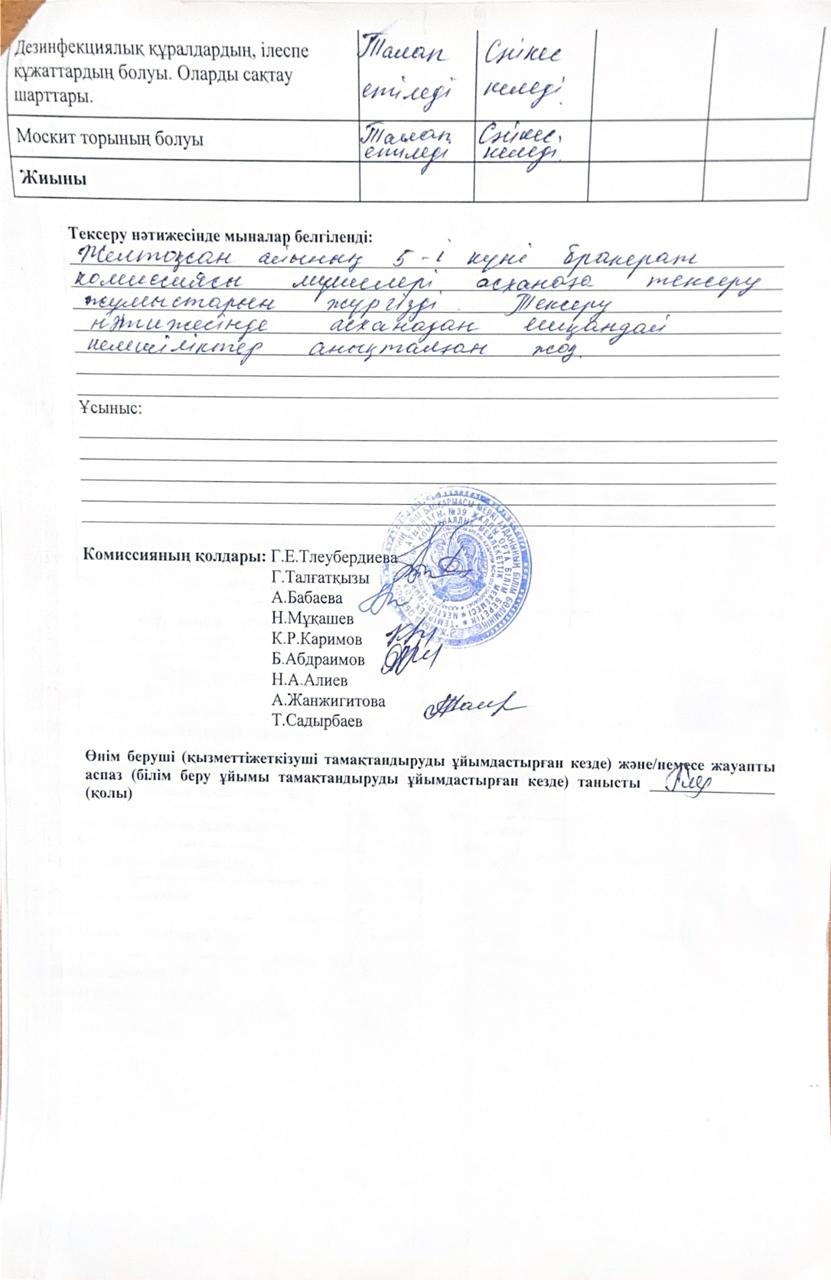 Дезинфекциялық құралдардың, ілеспе
құжаттардың болуы. Оларды сақтау
шарттары.
Талап
етіледі
Сәйкес
келеді.
Москит торының болуы
Талап
етіледі
Сәйкес
келеді.
Жиыны
Тексеру нәтижесінде мыналар белгіленді:
Желтоқсан айының 5-і күні бракераж
комиссиясы мүшелері асханаға тексеру
жұмыстарын жүргізді. Тексеру
нәтижесінде асханадан ешқандай
кемшіліктер анықталған жоқ.
Ұсыныс:
Комиссияның қолдары: Г.Е.Тлеубердиева
Г.Талғатқызы
А.Бабаева
Н.Мұқашев
К.Р.Каримов
Б.Абдраимов
Н.А.Алиев
А.Жанжигитова
Т.Садырбаев
Өнім беруші (қызметтіжеткізуші тамақтандыруды ұйымдастырған кезде) және/немесе жауапты
аспаз (білім беру ұйымы тамақтандыруды ұйымдастырған кезде) танысты
(қолы)